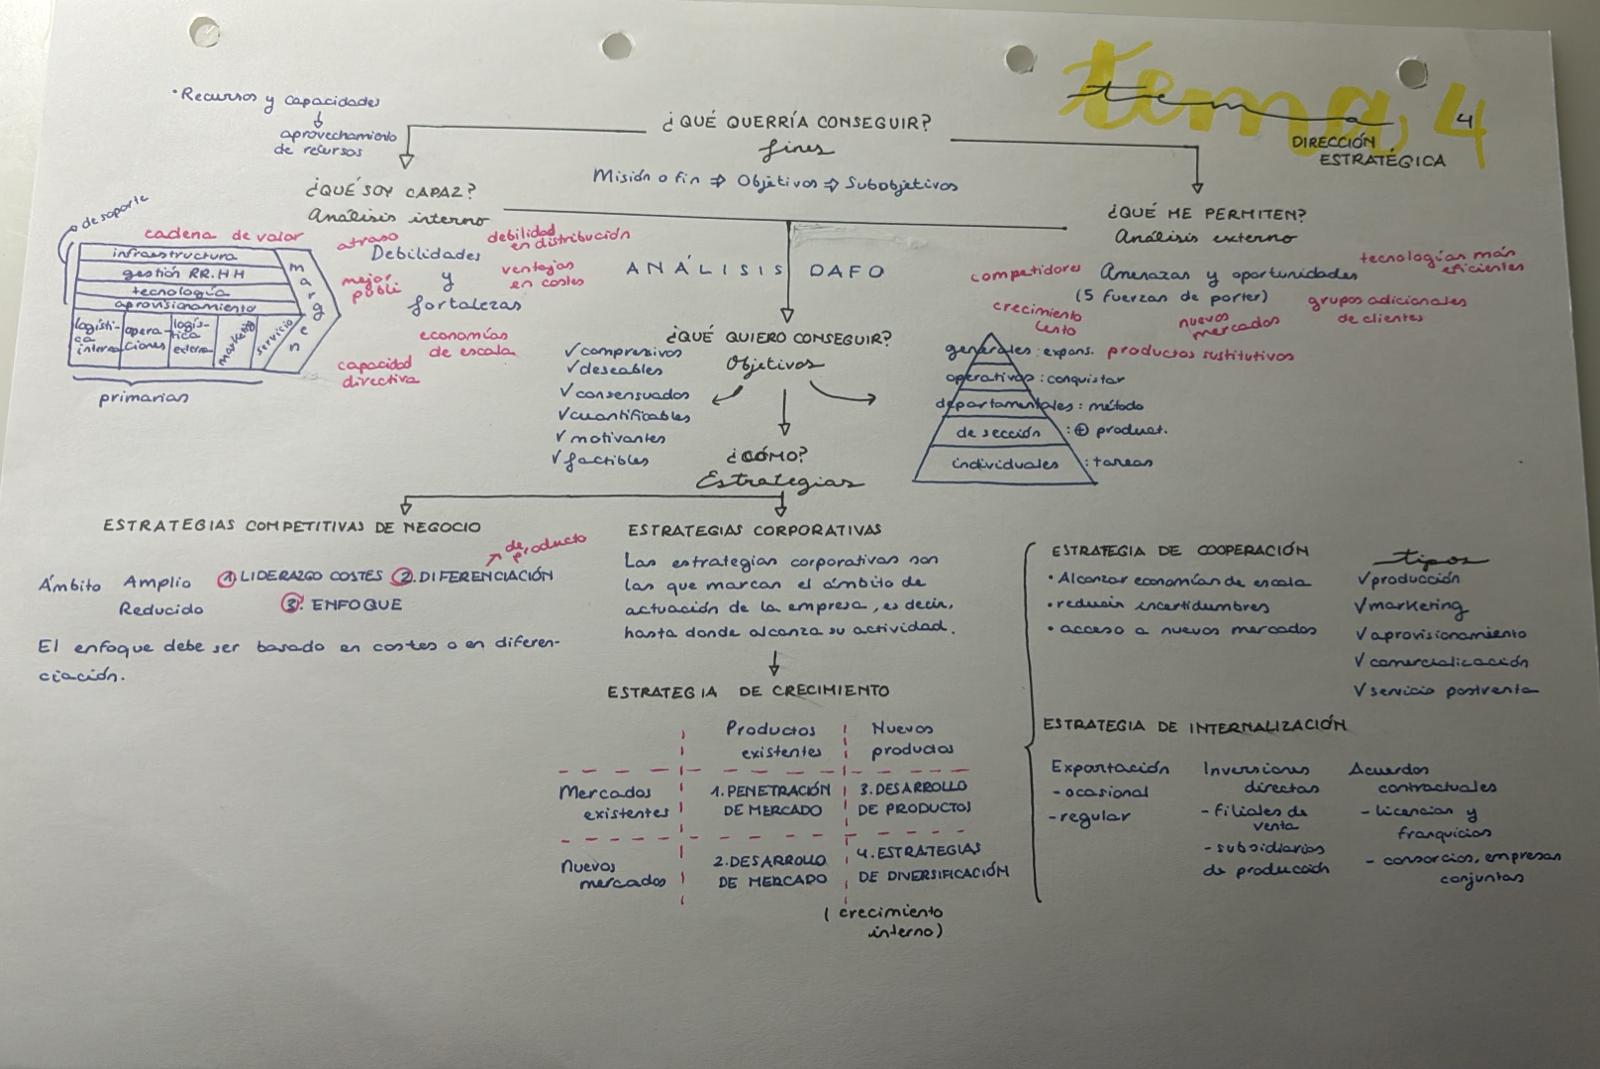 tema 4
DIRECCIÓN
ESTRATÉGICA
• Recursos y capacidades
aprovechamiento
de recursos
¿QUÉ QUERRÍA CONSEGUIR?
fines
Misión o fin ⇒ Objetivos ⇒ Subobjetivos
¿QUÉ SOY CAPAZ?
Análisis interno
¿QUÉ ME PERMITEN?
Análisis externo
de soporte
cadena de valor
infraestructura
gestión RR.HH
tecnología
aprovisionamiento
logísti-
ca
interna
opera-
ciones
logís-
tica
externa
marketing
servicio
margen
primarias
atraso
debilidad
en distribución
Debilidades
mejor
publi
y
ventajas
en costes
fortalezas
economías
de escala
capacidad
directiva
ANÁLISIS DAFO
competidores
Amenazas y oportunidades
tecnologías más
eficientes
(5 fuerzas de porter)
crecimiento
lento
nuevos
mercados
grupos adicionales
de clientes
productos sustitutivos
¿QUÉ QUIERO CONSEGUIR?
Objetivos
✓compresivos
✓deseables
✓consensuados
✓cuantificables
✓motivantes
✓factibles
generales : expans.
operativos : conquistar
departamentales : método
de sección : ⊕ product.
individuales : tareas
¿CÓMO?
Estrategias
ESTRATEGIAS COMPETITIVAS DE NEGOCIO
de producto
Ámbito Amplio 1. LIDERAZGO COSTES 2. DIFERENCIACIÓN
Reducido 3. ENFOQUE
El enfoque debe ser basado en costes o en diferen-
ciación.
ESTRATEGIAS CORPORATIVAS
Las estrategias corporativas son
las que marcan el ámbito de
actuación de la empresa, es decir,
hasta donde alcanza su actividad.
ESTRATEGIA DE CRECIMIENTO
Productos
existentes
Nuevos
productos
Mercados
existentes
1. PENETRACIÓN
DE MERCADO
3. DESARROLLO
DE PRODUCTOS
Nuevos
mercados
2. DESARROLLO
DE MERCADO
4. ESTRATEGIAS
DE DIVERSIFICACIÓN
(crecimiento
interno)
ESTRATEGIA DE COOPERACIÓN
• Alcanzar economías de escala
• reducir incertidumbres
• acceso a nuevos mercados
tipos
✓producción
✓marketing
✓aprovisionamiento
✓comercialicación
✓servicio postventa
ESTRATEGIA DE INTERNALIZACIÓN
Exportación
- ocasional
- regular
Inversiones
directas
- filiales de
venta
- subsidiarias
de producción
Acuerdos
contractuales
- licencias y
franquicias
- consorcios, empresas
conjuntas